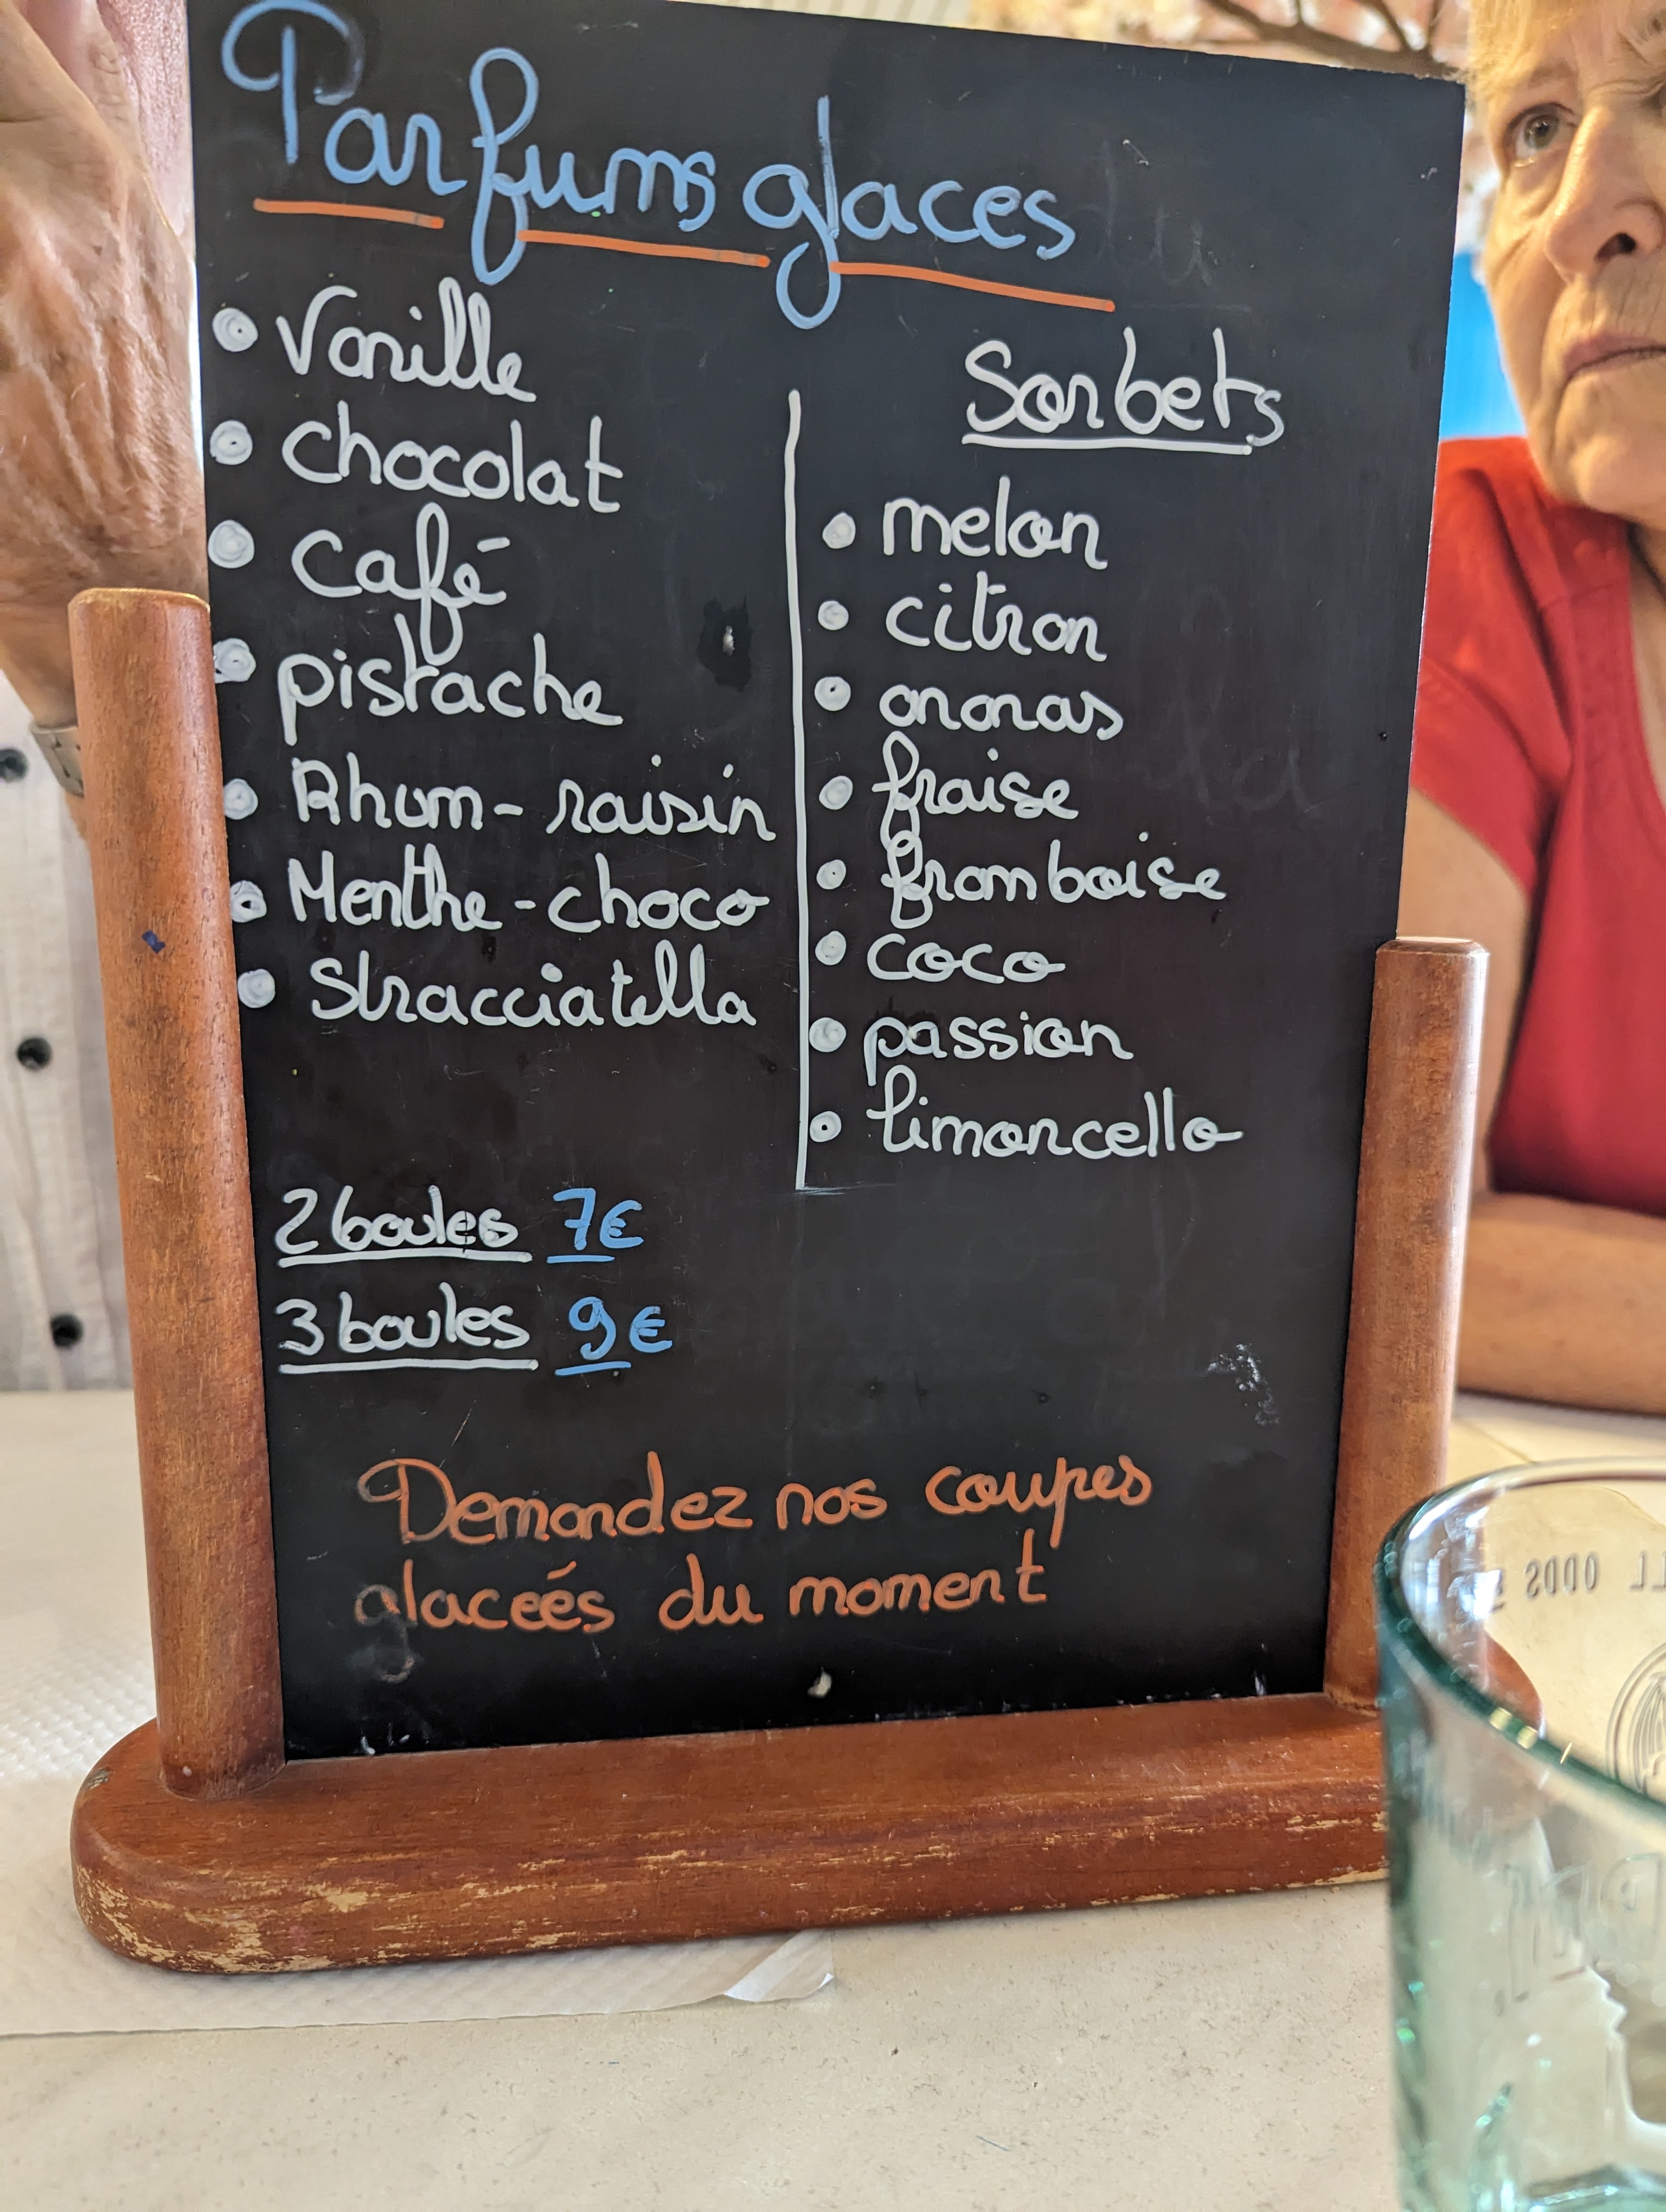 Parfums glaces
• Vanille
• chocolat
• café
• pistache
• Rhum-raisin
• Menthe-choco
• Stracciatella
Sorbets
• melon
• citron
• ananas
• fraise
• framboise
• coco
• passion
• limoncello
2 boules 7€
3 boules 9€
Demandez nos coupes
glaceés du moment